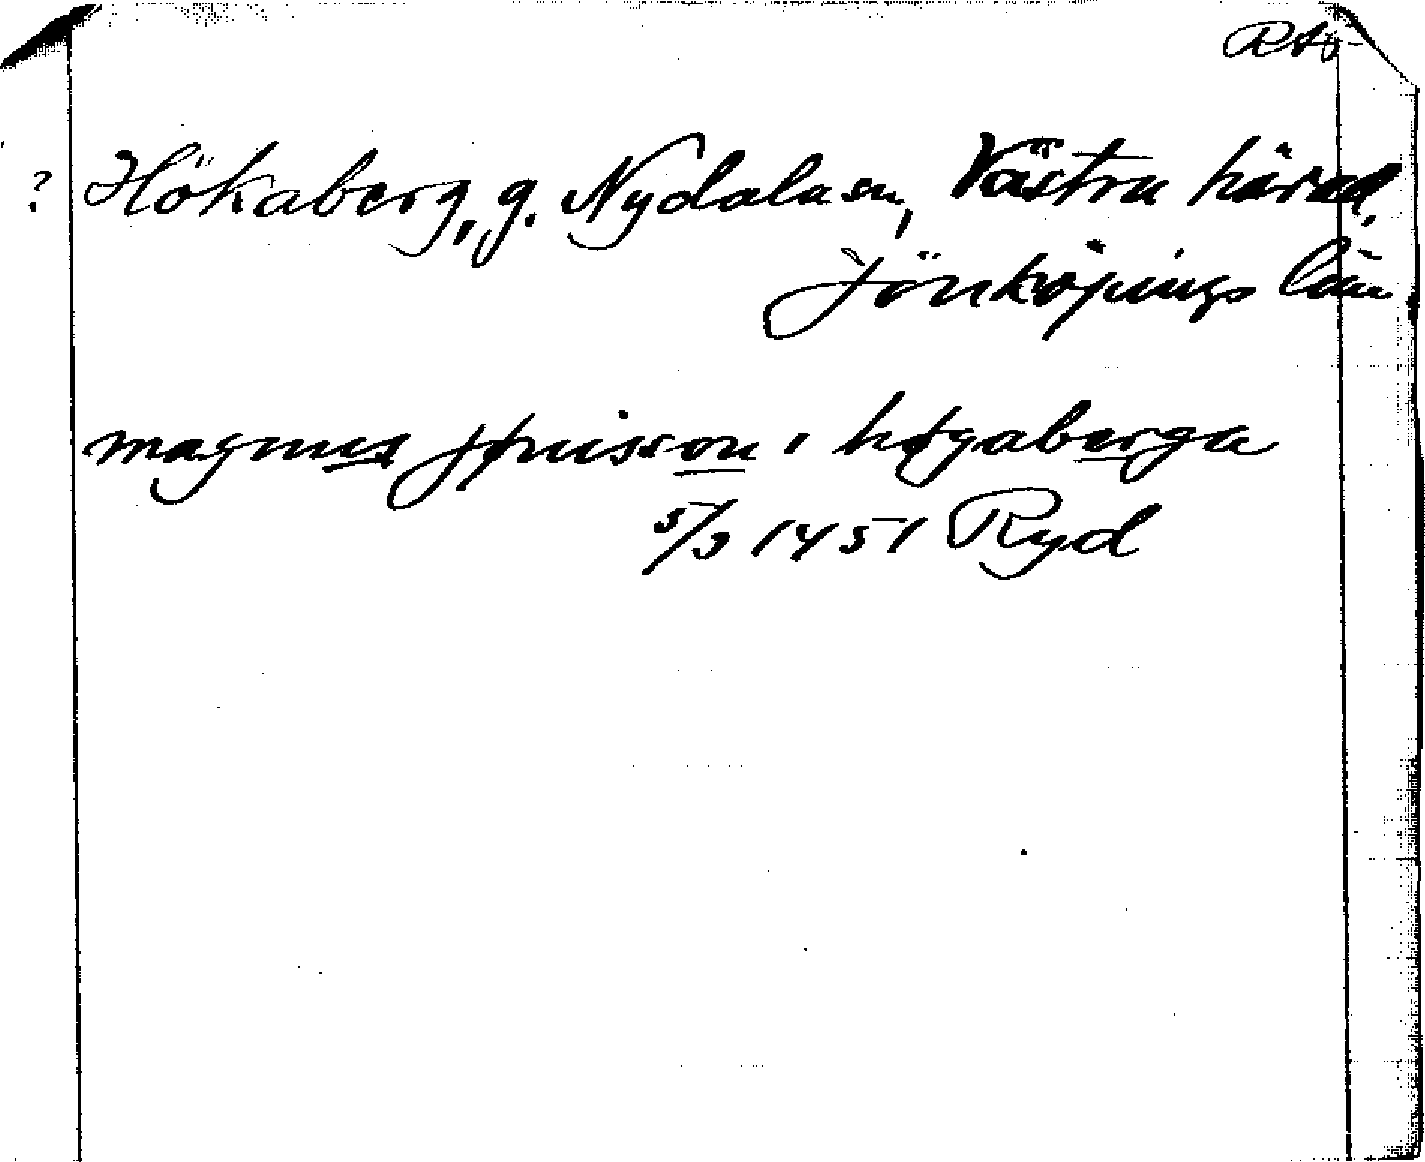 RAp
? Hökaberg, g. Nydala sn, Västra härad,
Jönköpings län.
magnus jønisson i høgaberga
5/3 1451 Ryd